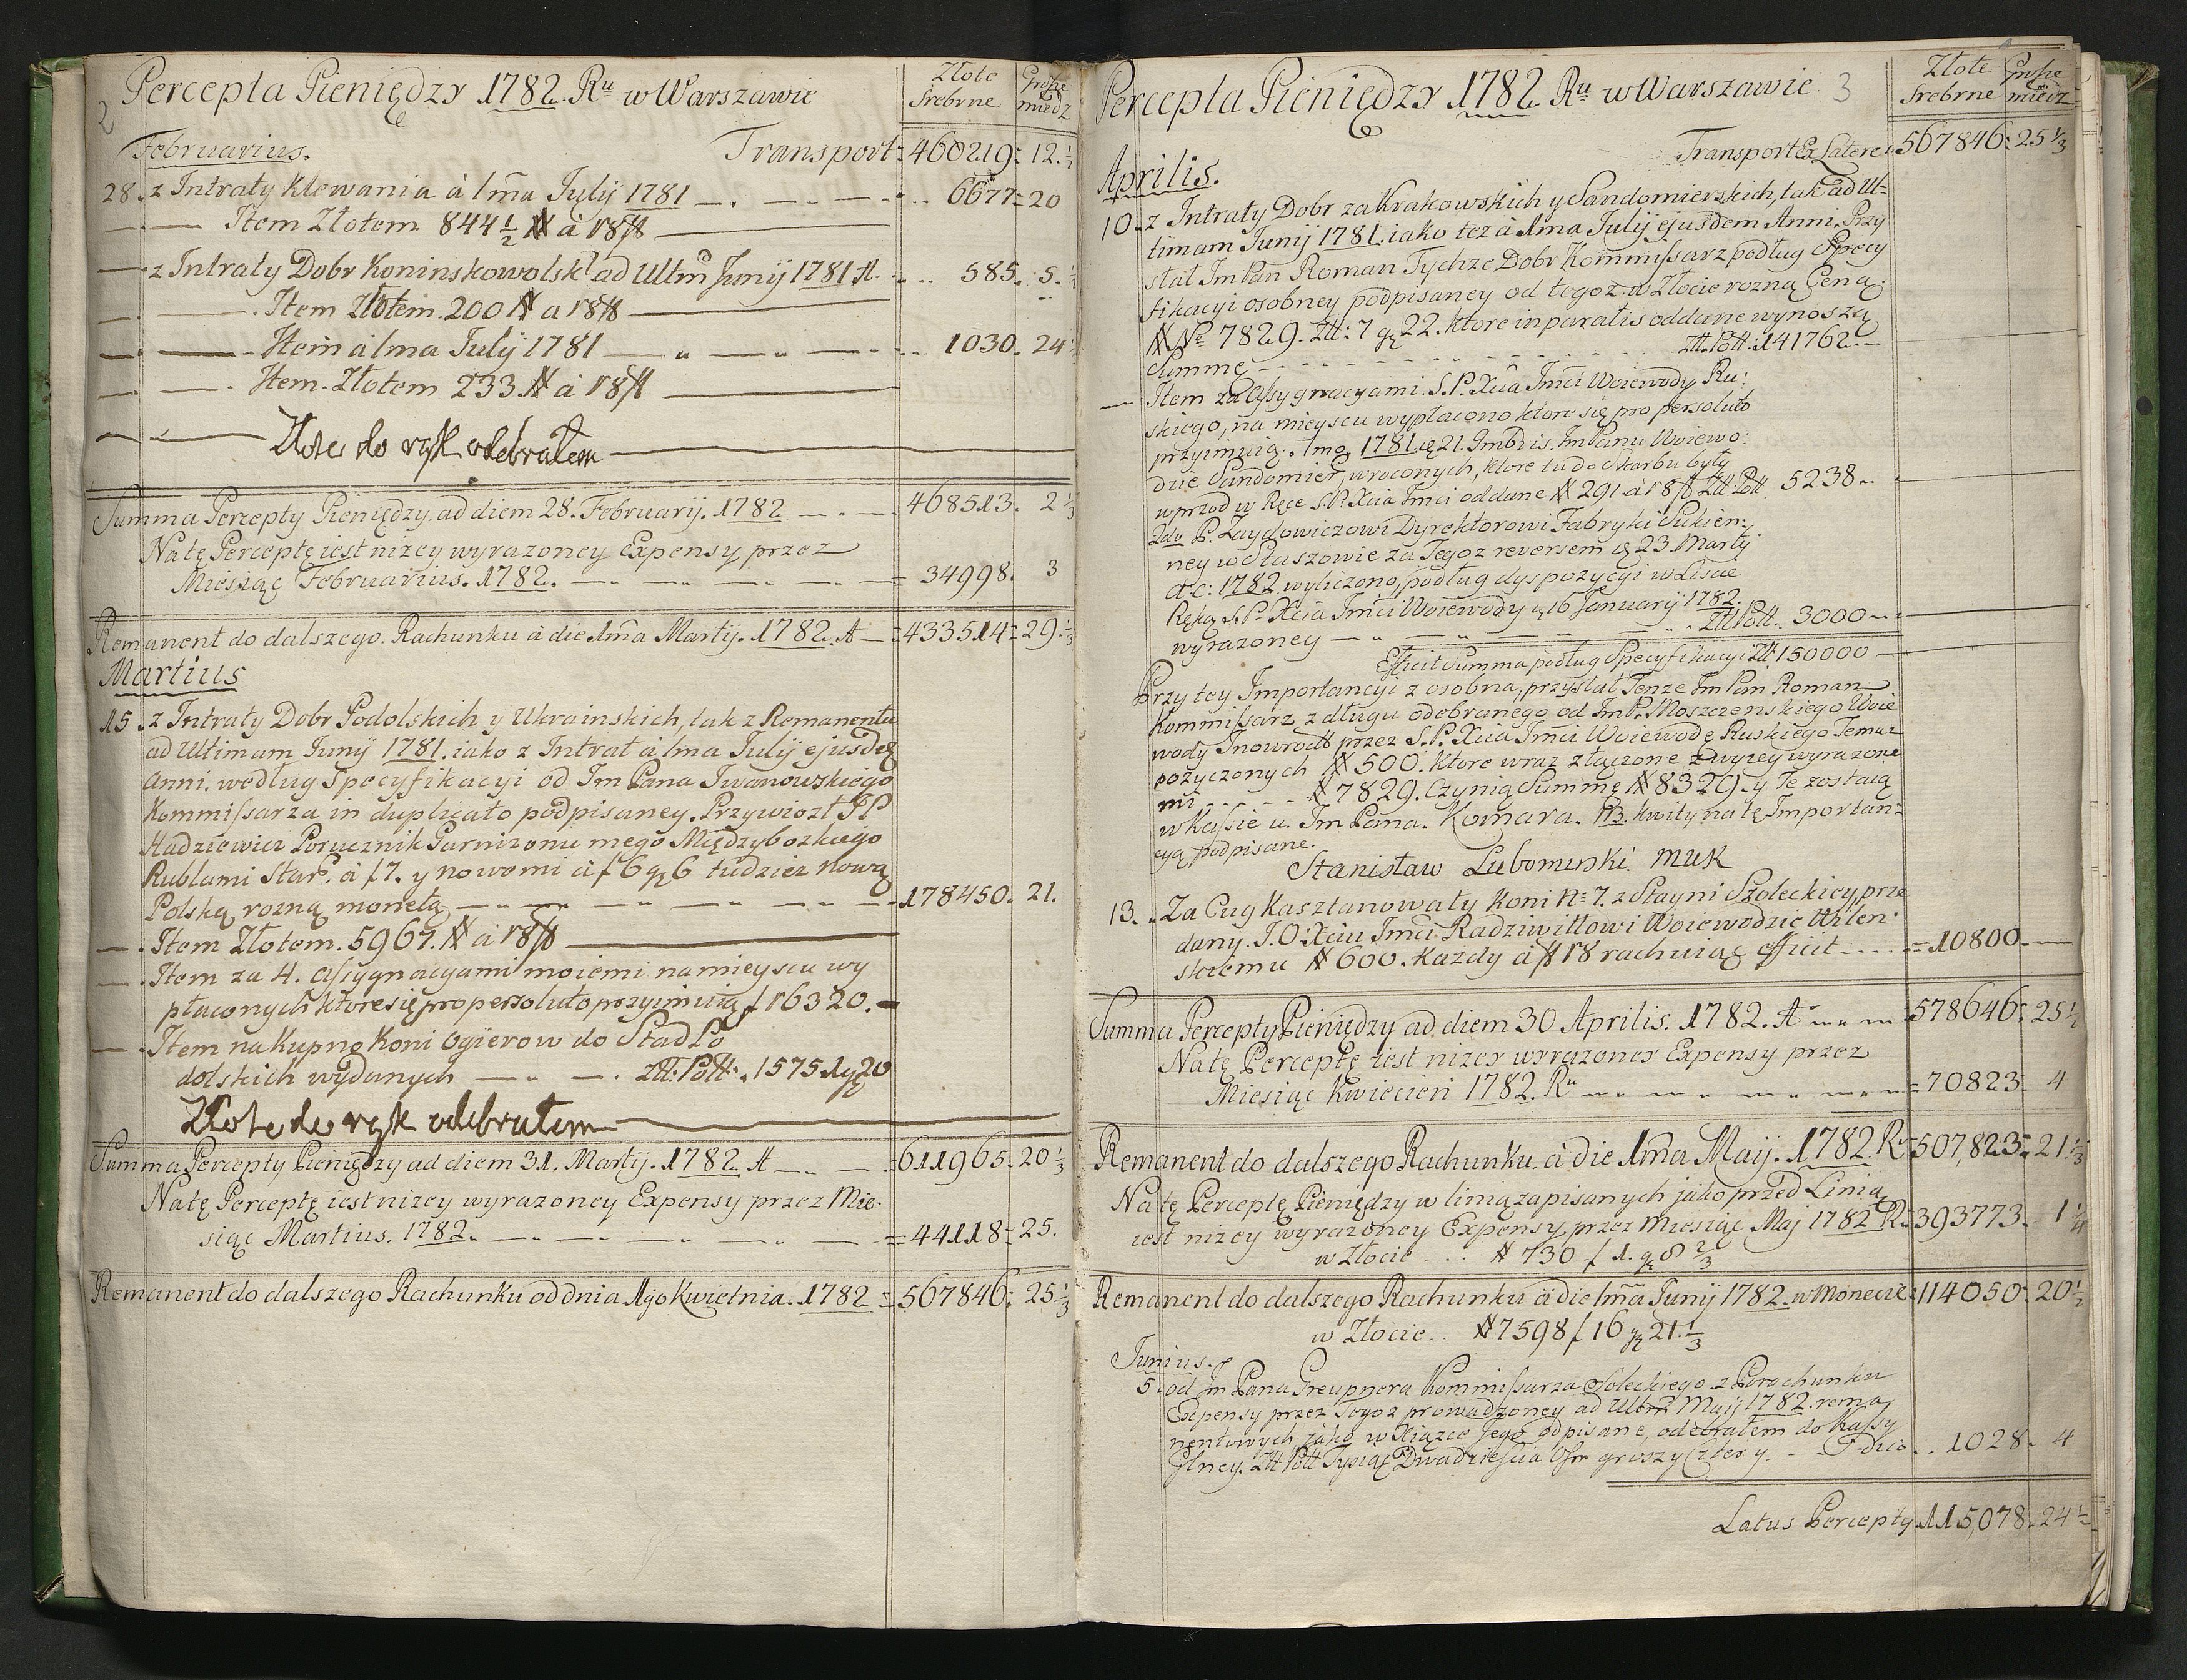 2
Percepta Pieniędzy 1782. Ru w Warszawie
Złote Srebrne
Grosze miedz
Februarius.
Transport = 460219 = 12. ½
28. z Intraty Klewania à 1ma Julij 1781 — . — . . 6677 = 20
— Item Złotem 844 ½ # à 18 f
— z Intraty Dobr Koninskowolsk. ad Ultm Junij 1781 A. . . 585. 5. ½
— . Item Złotem. 200 # a 18 f
— Item à 1ma Julij 1781 — „ — „ — . . 1030. 24 ½
— . Item. Złotem 233. # à 18 f
Złote do rąk odebrałem
Summa Percepty Pieniędzy. ad diem 28. Februarij. 1782 — . — . 468513. 2 ⅓
Na tę Perceptę iest niżey wyrazoney Expensy, przez
Miesiąc Februarius. 1782. — = 34998. 3
Remanent do dalszego. Rachunku à die 1ma Martij. 1782. A — = 433514 = 29. ⅓
Martius
15. z Intraty Dobr Podolskich y Ukrainskich, tak z Remanentu
ad Ultimam Junij 1781. iako z Intrat à 1ma Julij ejusdē
Anni. według Specyfikacyi od Im Pana Iwanowskiego
Kommissarza in duplicato podpisaney. Przywiozł JP
Hadziewicz Porucznik Garnizonu mego Międzybozkiego
Rublami Star. à f 7. y nowemi à f 6 gr 6 tudziez nową
Polską rozną monetą — 178450. 21.
— . Item Złotem. 5967. # à 18 f
— . Item za 4. Assygnacyami moiemi na mieyscu wy
płaconych ktore się pro persoluto przyimuią f 16320. —
— . Item na Kupno Koni Ogierow do Stad Po
dolskich wydanych — . — . Złł: Poll. 15751 gr 20
Złote do rąk odebrałem
Summa Percepty Pieniędzy ad diem 31. Martij. 1782. A — . — = 611965. 20 ⅓
Na tę Perceptę iest niżey wyrazoney Expensy przez Mie-
siąc Martius. 1782. — = 44118 = 25.
Remanent do dalszego Rachunku od dnia 1go Kwietnia. 1782 = 567846. 25. ⅓
Percepta Pieniędzy 1782 Ru w Warszawie. 3
Złote Srebrne
Grosze miedz
Transport Ex Latere. 567846. 25 ⅓
Aprilis.
10. z Intraty Dobr za Krakowskich y Sandomierskich, tak ad Ul-
timam Junij 1781. iako tez à 1ma Julij ejusdem Anni. Przy
słał Im Pan Roman Tychze Dobr Kommissarz podług Specy
fikacyi osobney podpisaney od tegoz w Złocie rozną Ceną.
# No 7829. Złł: 7 gr 22. ktore in paratis oddane wynoszą
Summę - - - - Złł. Poll: 141762. —
— Item za Assygnacyami. S. P. Xcia Imci Woiewody Ru:
skiego, na mieyscu wypłacono ktore się pro persoluto
przyimuią. 1mo 1781. d 21. 9mbris. Im Panu Woiewo:
dzie Sandomier, wroconych, ktore tu do Skarbu były
wprzod w Ręce S. P. Xcia Imci oddane # 291 à 18 f Złł: Poll 5238 „
2do P. Zaydowiczowi Dyrektorowi Fabryki Sukien-
ney w Staszowie za Tegoz reversem d 23. Martij
a: c: 1782 wyliczono, podług dyspozycyi w Liscie
Ręką S. P. Xcia Imci Woiewody d 16 Januarij 1782.
wyrazoney — „ — „ Złł Poll. 3000 —
Efficit Summa podług Specyfikacyi Złł 150000 —
Przy tey Importancyi z osobna, przysłał Tenze Im Pan Roman
Kommissarz z długu odebranego od Im P. Moszczenskiego Woie
wody Inowrocł przez S. P. Xcia Imci Woiewodę Ruskiego Temuz
pozyczonych # 500. ktore wraz złączone z wyzey wyrazone
mi . . . # 7829. Czynią Summę # 8329. y Te zostaią
w Kassie u. Im Pana. Komara. NB. kwity na tę Importan-
cyą podpisane.
Stanisław Lubomirski. MWK
13. . Za Cug Kasztanowaty Koni N 7. z Stayni Szoleckiey, prze
dany. J. O: Xciu Imci Radziwiłłowi Woiewodzie Wilen-
skiemu # 600. Kazdy à f 18 rachuiąc efficit . . . = 10800. —
Summa Percepty Pieniędzy ad. diem 30 Aprilis. 1782. A 578646. 25 ½
Na tę Perceptę iest niżey wyrazoney Expensy przez
Miesiąc Kwiecień 1782. Ru = 70823. 4
Remanent do dalszego Rachunku. à die 1ma Maij. 1782. Ru 507,823. 21. ⅓
Na tę Perceptę Pieniędzy w linią zapisanych jako przed Linią
iest niżey wyrazoney Expensy, przez Miesiąc Maj 1782 R. 393773. 1 ¼
w Złocie . . . # 730 f 1. gr 8 ⅔
Remanent do dalszego Rachunku à die 1ma Junij 1782. w Monecie 114050. 20 ½
w Złocie . . # 7598 f 16 gr 21. ⅓
Junius.
5. od Im Pana Greupnera Kommissarza Soleckiego z Porachunku
Expensy przez Tegoz prowadzoney ad Ultm Maij 1782. rema
nentowych jako w Xiązce Jego odpisane, odebrałem do Kassy
Glney. Złł Poll Tysiąc Dwadzieścia Ośm groszy Cztery. . . 1028. 4
Latus Percepty 115,078. 24 ½